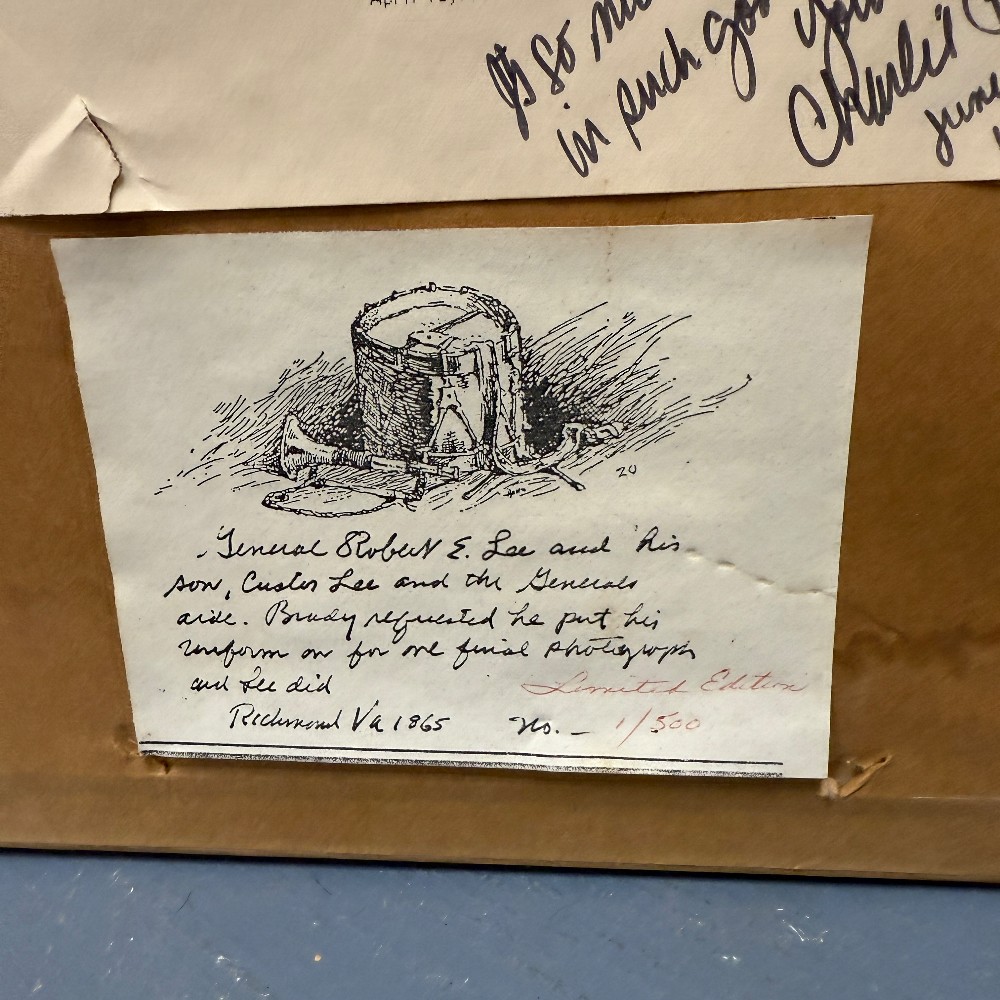 April
Its so
in such
Charlie
June
20
General Robert E. Lee and his
son, Custer Lee and the Generals
aide. Brady requested he put his
uniform on for one final photograph
and Lee did
Limited Edition
Richmond Va 1865 No. - 1/500